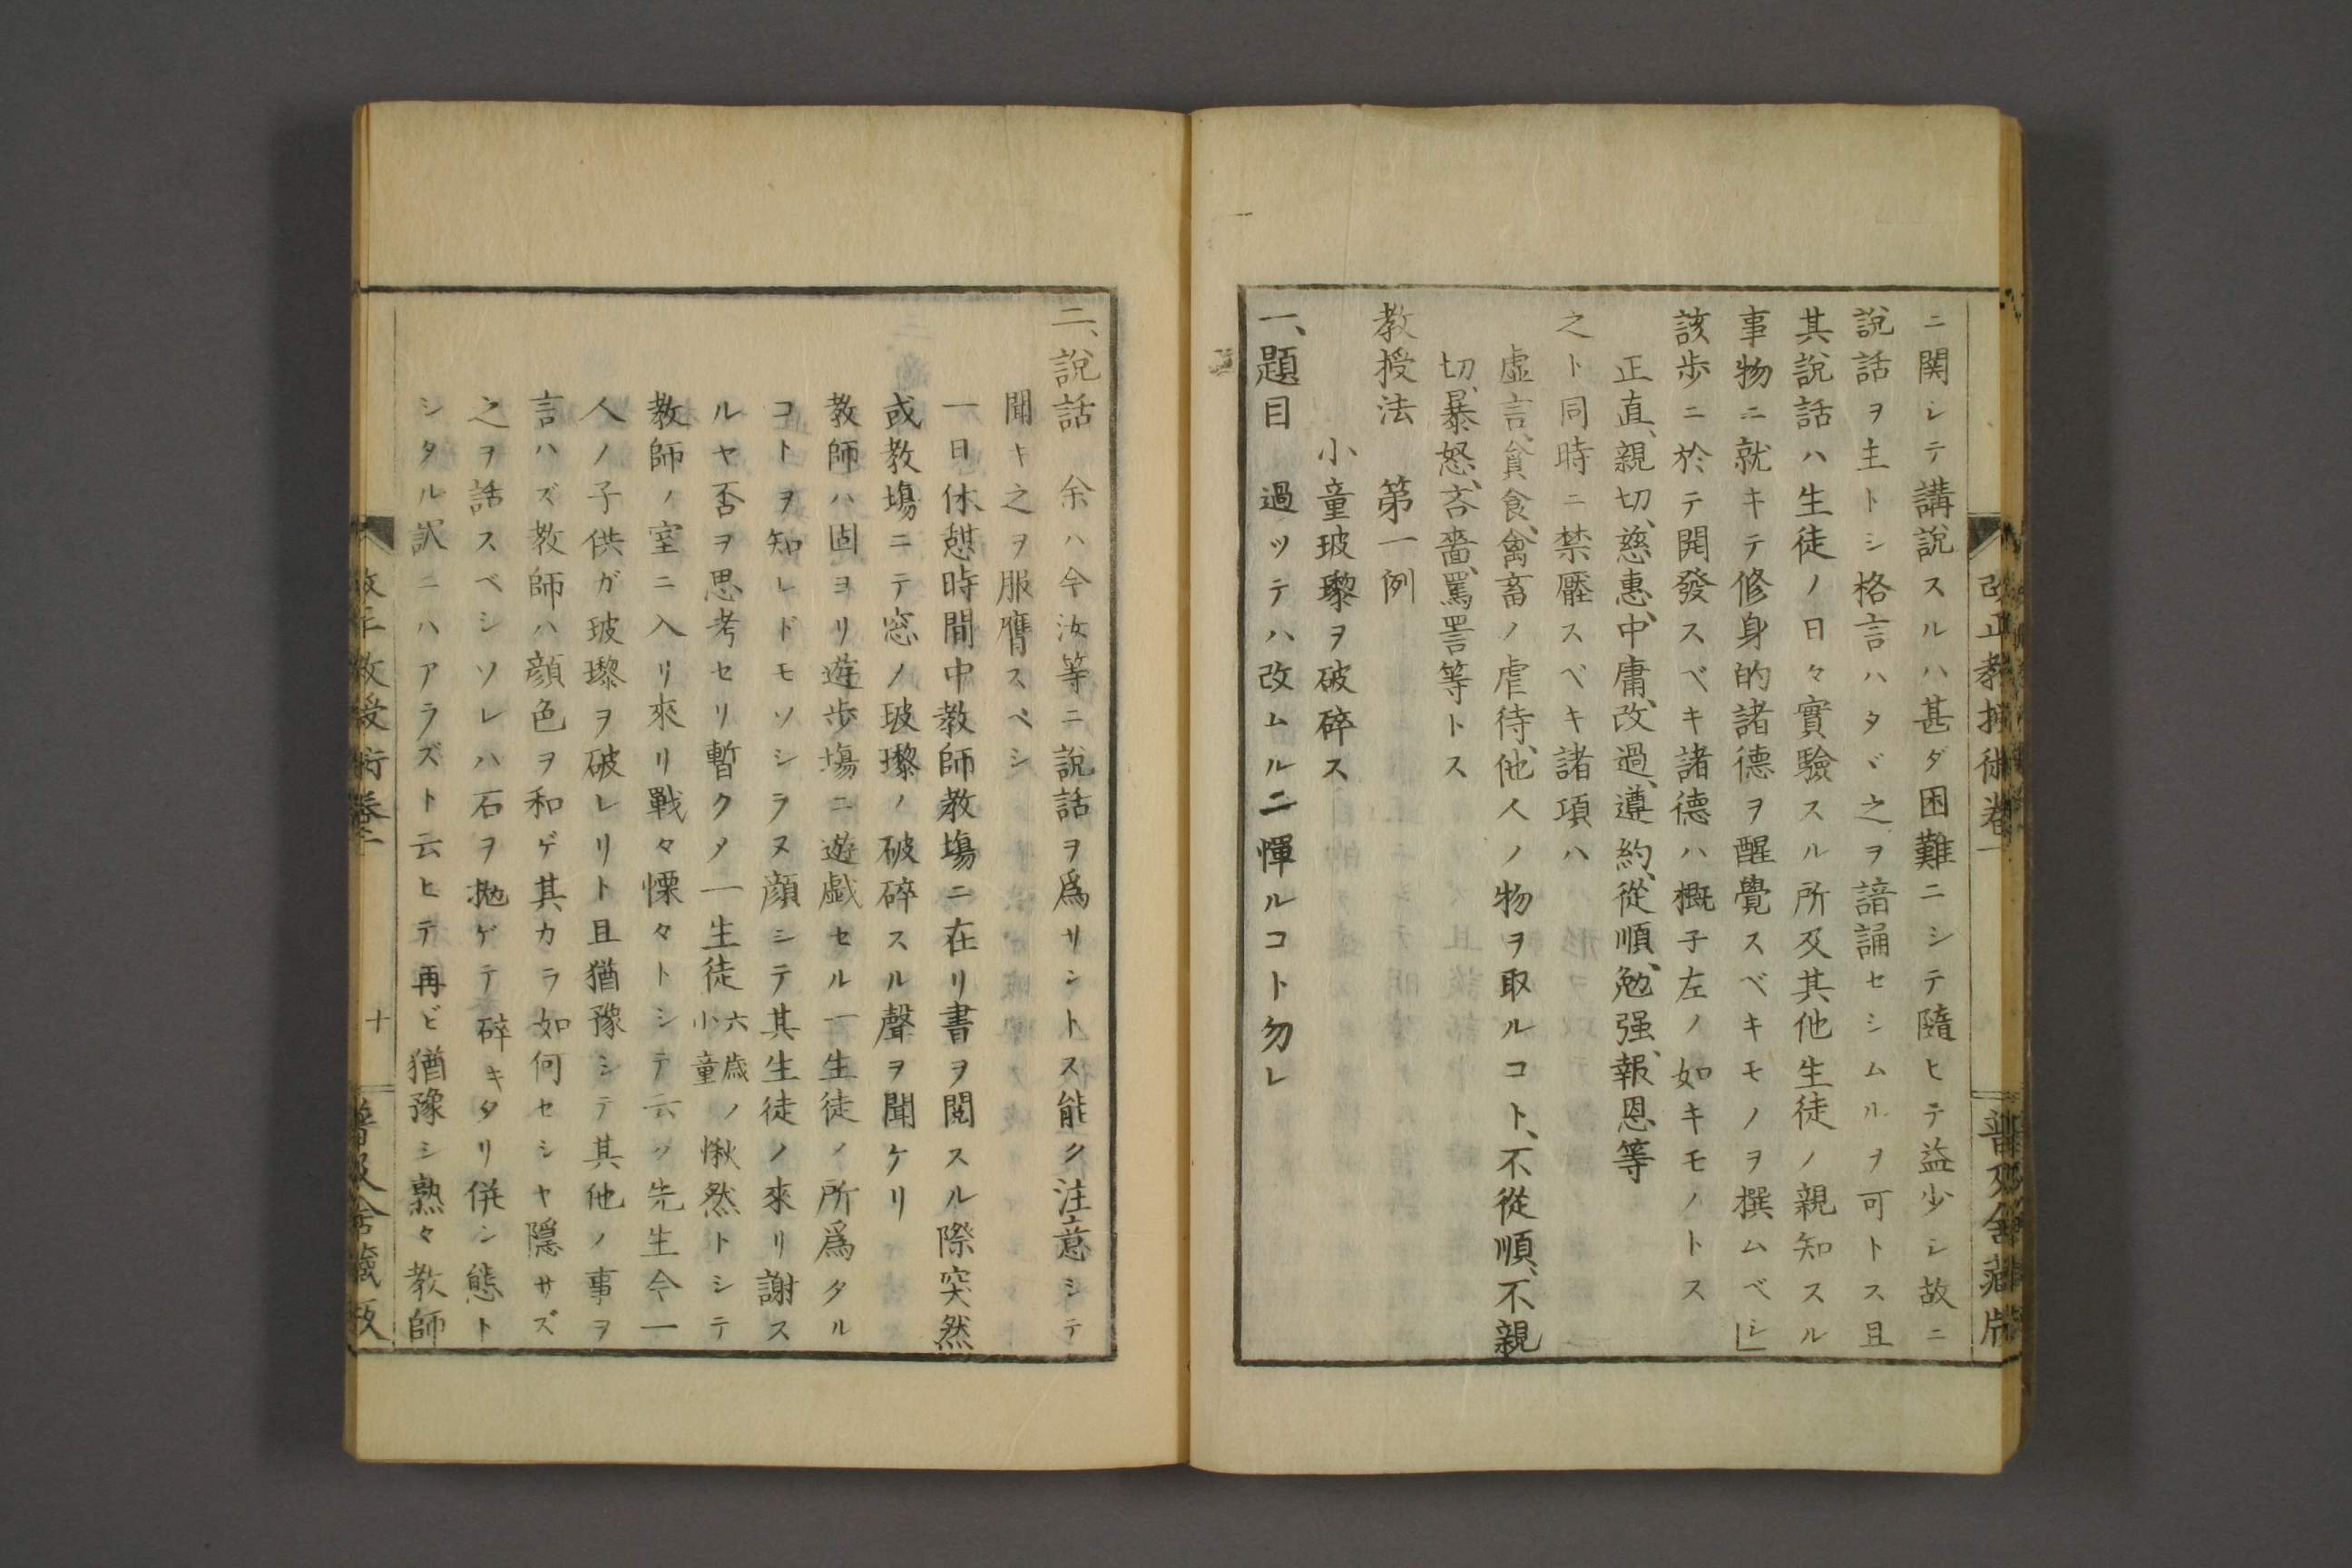 改正教授術卷一
普及舍藏版
ニ関シテ講說スルハ甚ダ困難ニシテ隨ヒテ益少シ故ニ
說話ヲ主トシ格言ハタヾ之ヲ諳誦セシムルヲ可トス且
其說話ハ生徒ノ日々實驗スル所及其他生徒ノ親知スル
事物ニ就キテ修身的諸德ヲ醒覺スベキモノヲ撰ムベシ」
該步ニ於テ開發スベキ諸德ハ概子左ノ如キモノトス
正直、親切、慈惠、中庸、改過、遵約、從順、勉强、報恩、等
之ト同時ニ禁壓スベキ諸項ハ
虛言、貪食、禽畜ノ虐待、他人ノ物ヲ取ルコト、不從順、不親
切、暴怒、吝嗇、罵詈等トス
教授法　第一例
小童玻璨ヲ破碎ス
一、題目　過ッテハ改ムルニ憚ルコト勿レ
二、說話　余ハ今汝等ニ說話ヲ爲サントス能ク注意シテ
聞キ之ヲ服膺スベシ
一日休憩時間中教師教塲ニ在リ書ヲ閲スル際突然
或教塲ニテ窓ノ玻璨ノ破碎スル聲ヲ聞ケリ
教師ハ固ヨリ遊步塲ニ遊戲セル一生徒ノ所爲タル
コトヲ知レドモソシラヌ顔シテ其生徒ノ來リ謝ス
ルヤ否ヲ思考セリ暫クメ一生徒六歳小童ノ愀然トシテ
教師ノ室ニ入リ來リ戰々慄々トシテ云ク先生今一
人ノ子供ガ玻璨ヲ破レリト且猶豫シテ其他ノ事ヲ
言ハズ教師ハ顔色ヲ和ゲ其カラ如何セシヤ隱サズ
之ヲ話スベシソレハ石ヲ抛ゲテ碎キタリ併シ態ト
シタル訳ニハアラズト云ヒテ再ビ猶豫シ熟々教師
改正教授術卷一
十
普及舍藏版